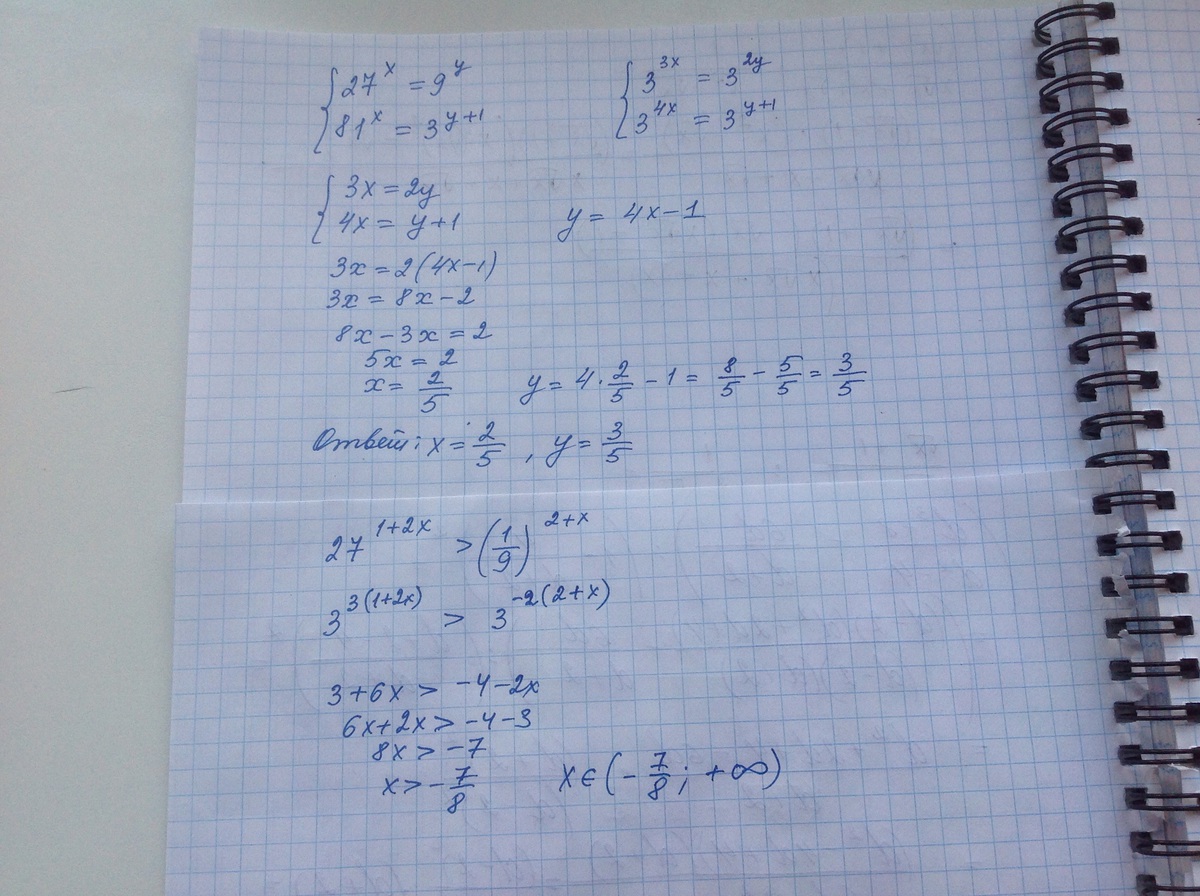 { 27^x = 9^y
81^x = 3^(y+1)
{ 3^(3x) = 3^(2y)
3^(4x) = 3^(y+1)
{ 3x = 2y
4x = y+1 y = 4x-1
3x = 2(4x-1)
3x = 8x-2
8x-3x = 2
5x = 2
x = 2/5 y = 4·2/5 - 1 = 8/5 - 5/5 = 3/5
Ответ: x = 2/5, y = 3/5
27^(1+2x) > (1/9)^(2+x)
3^(3(1+2x)) > 3^(-2(2+x))
3+6x > -4-2x
6x+2x > -4-3
8x > -7
x > -7/8 x∈(-7/8; +∞)